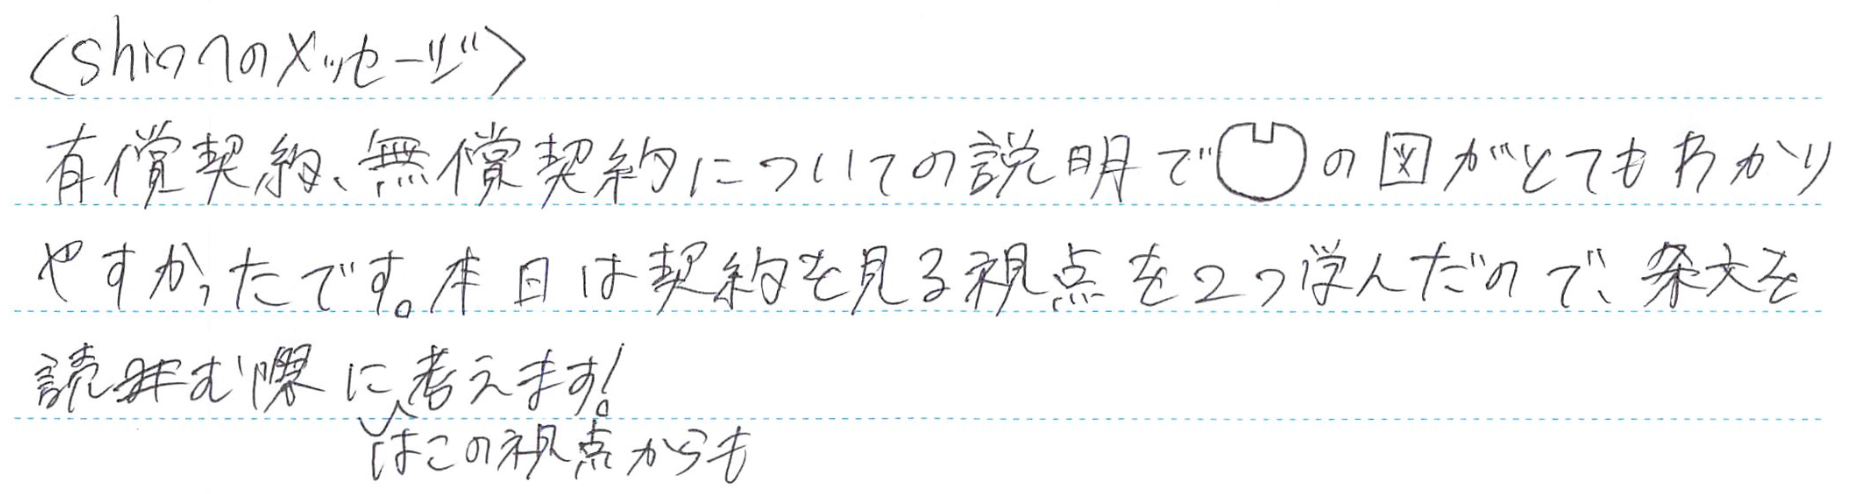 <shinへのメッセージ>
有償契約、無償契約についての説明での図がとてもわかり
やすかったです。本日は契約を見る視点を2つ学んだので、条文を
読む際に考えます!
はこの視点からも